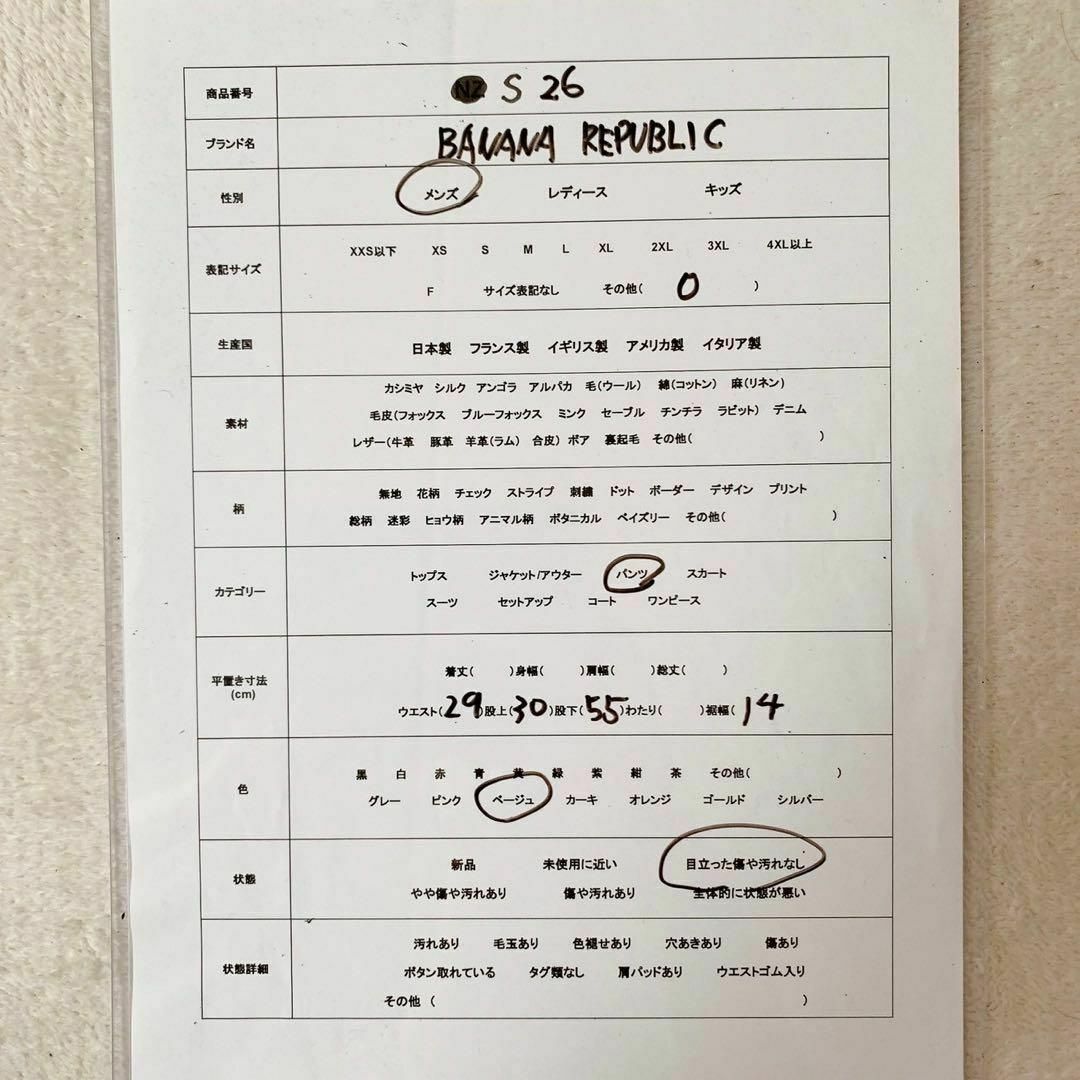 商品番号 NZ S 26
ブランド名 BANANA REPUBLIC
性別 メンズ レディース キッズ
XXS以下 XS S M L XL 2XL 3XL 4XL以上
表記サイズ
F サイズ表記なし その他( 0 )
生産国 日本製 フランス製 イギリス製 アメリカ製 イタリア製
カシミヤ シルク アンゴラ アルパカ 毛(ウール) 綿(コットン) 麻(リネン)
素材 毛皮(フォックス ブルーフォックス ミンク セーブル チンチラ ラビット) デニム
レザー(牛革 豚革 羊革(ラム) 合皮) ボア 裏起毛 その他( )
無地 花柄 チェック ストライプ 刺繍 ドット ボーダー デザイン プリント
柄
総柄 迷彩 ヒョウ柄 アニマル柄 ボタニカル ペイズリー その他( )
トップス ジャケット/アウター パンツ スカート
カテゴリー
スーツ セットアップ コート ワンピース
着丈( )身幅( )肩幅( )総丈( )
平置き寸法
(cm)
ウエスト(29)股上(30)股下(55)わたり( )裾幅( 14
黒 白 赤 青 黄 緑 紫 紺 茶 その他( )
色
グレー ピンク ベージュ カーキ オレンジ ゴールド シルバー
新品 未使用に近い 目立った傷や汚れなし
状態
やや傷や汚れあり 傷や汚れあり 全体的に状態が悪い
汚れあり 毛玉あり 色褪せあり 穴あきあり 傷あり
状態詳細 ボタン取れている タグ類なし 肩パッドあり ウエストゴム入り
その他 ( )